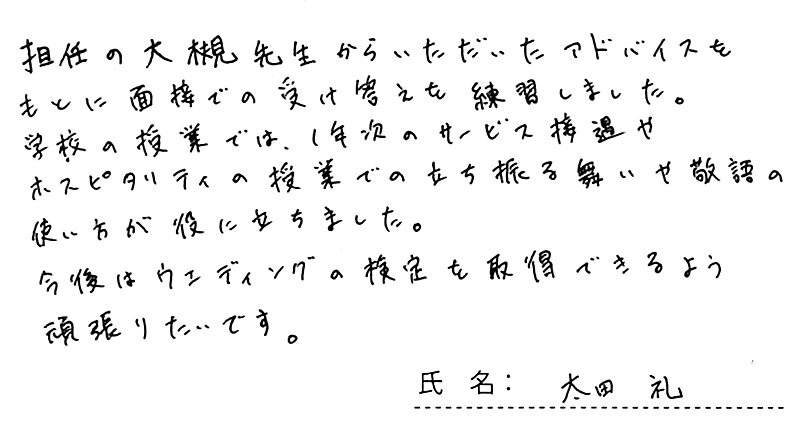 担任の大槻先生からいただいたアドバイスを
もとに面接での受け答えを練習しました。
学校の授業では、1年次のサービス接遇や
ホスピタリティの授業での立ち振る舞いや敬語の
使い方が役に立ちました。
今後はウエディングの検定を取得できるよう
頑張りたいです。
氏名: 太田 礼